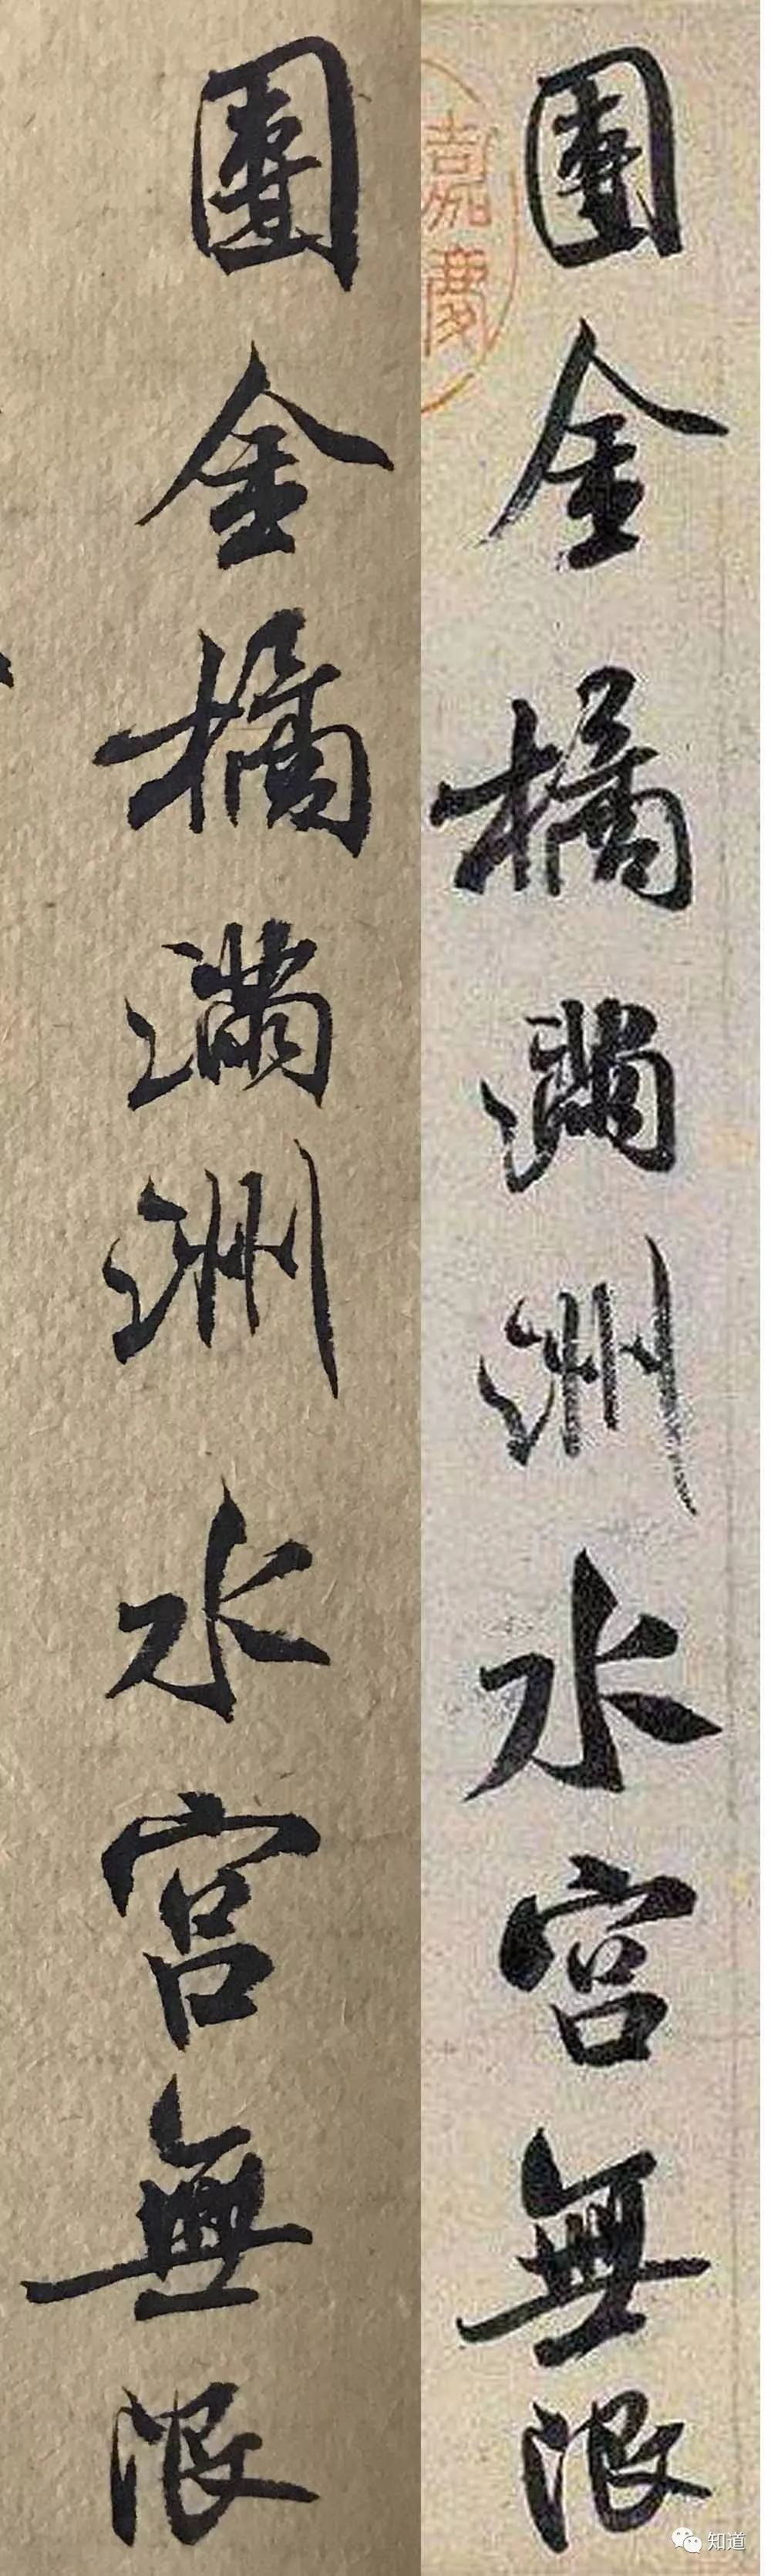 團金橘滿洲水宮無限
嘉慶
團金橘滿洲水宮無限
知道